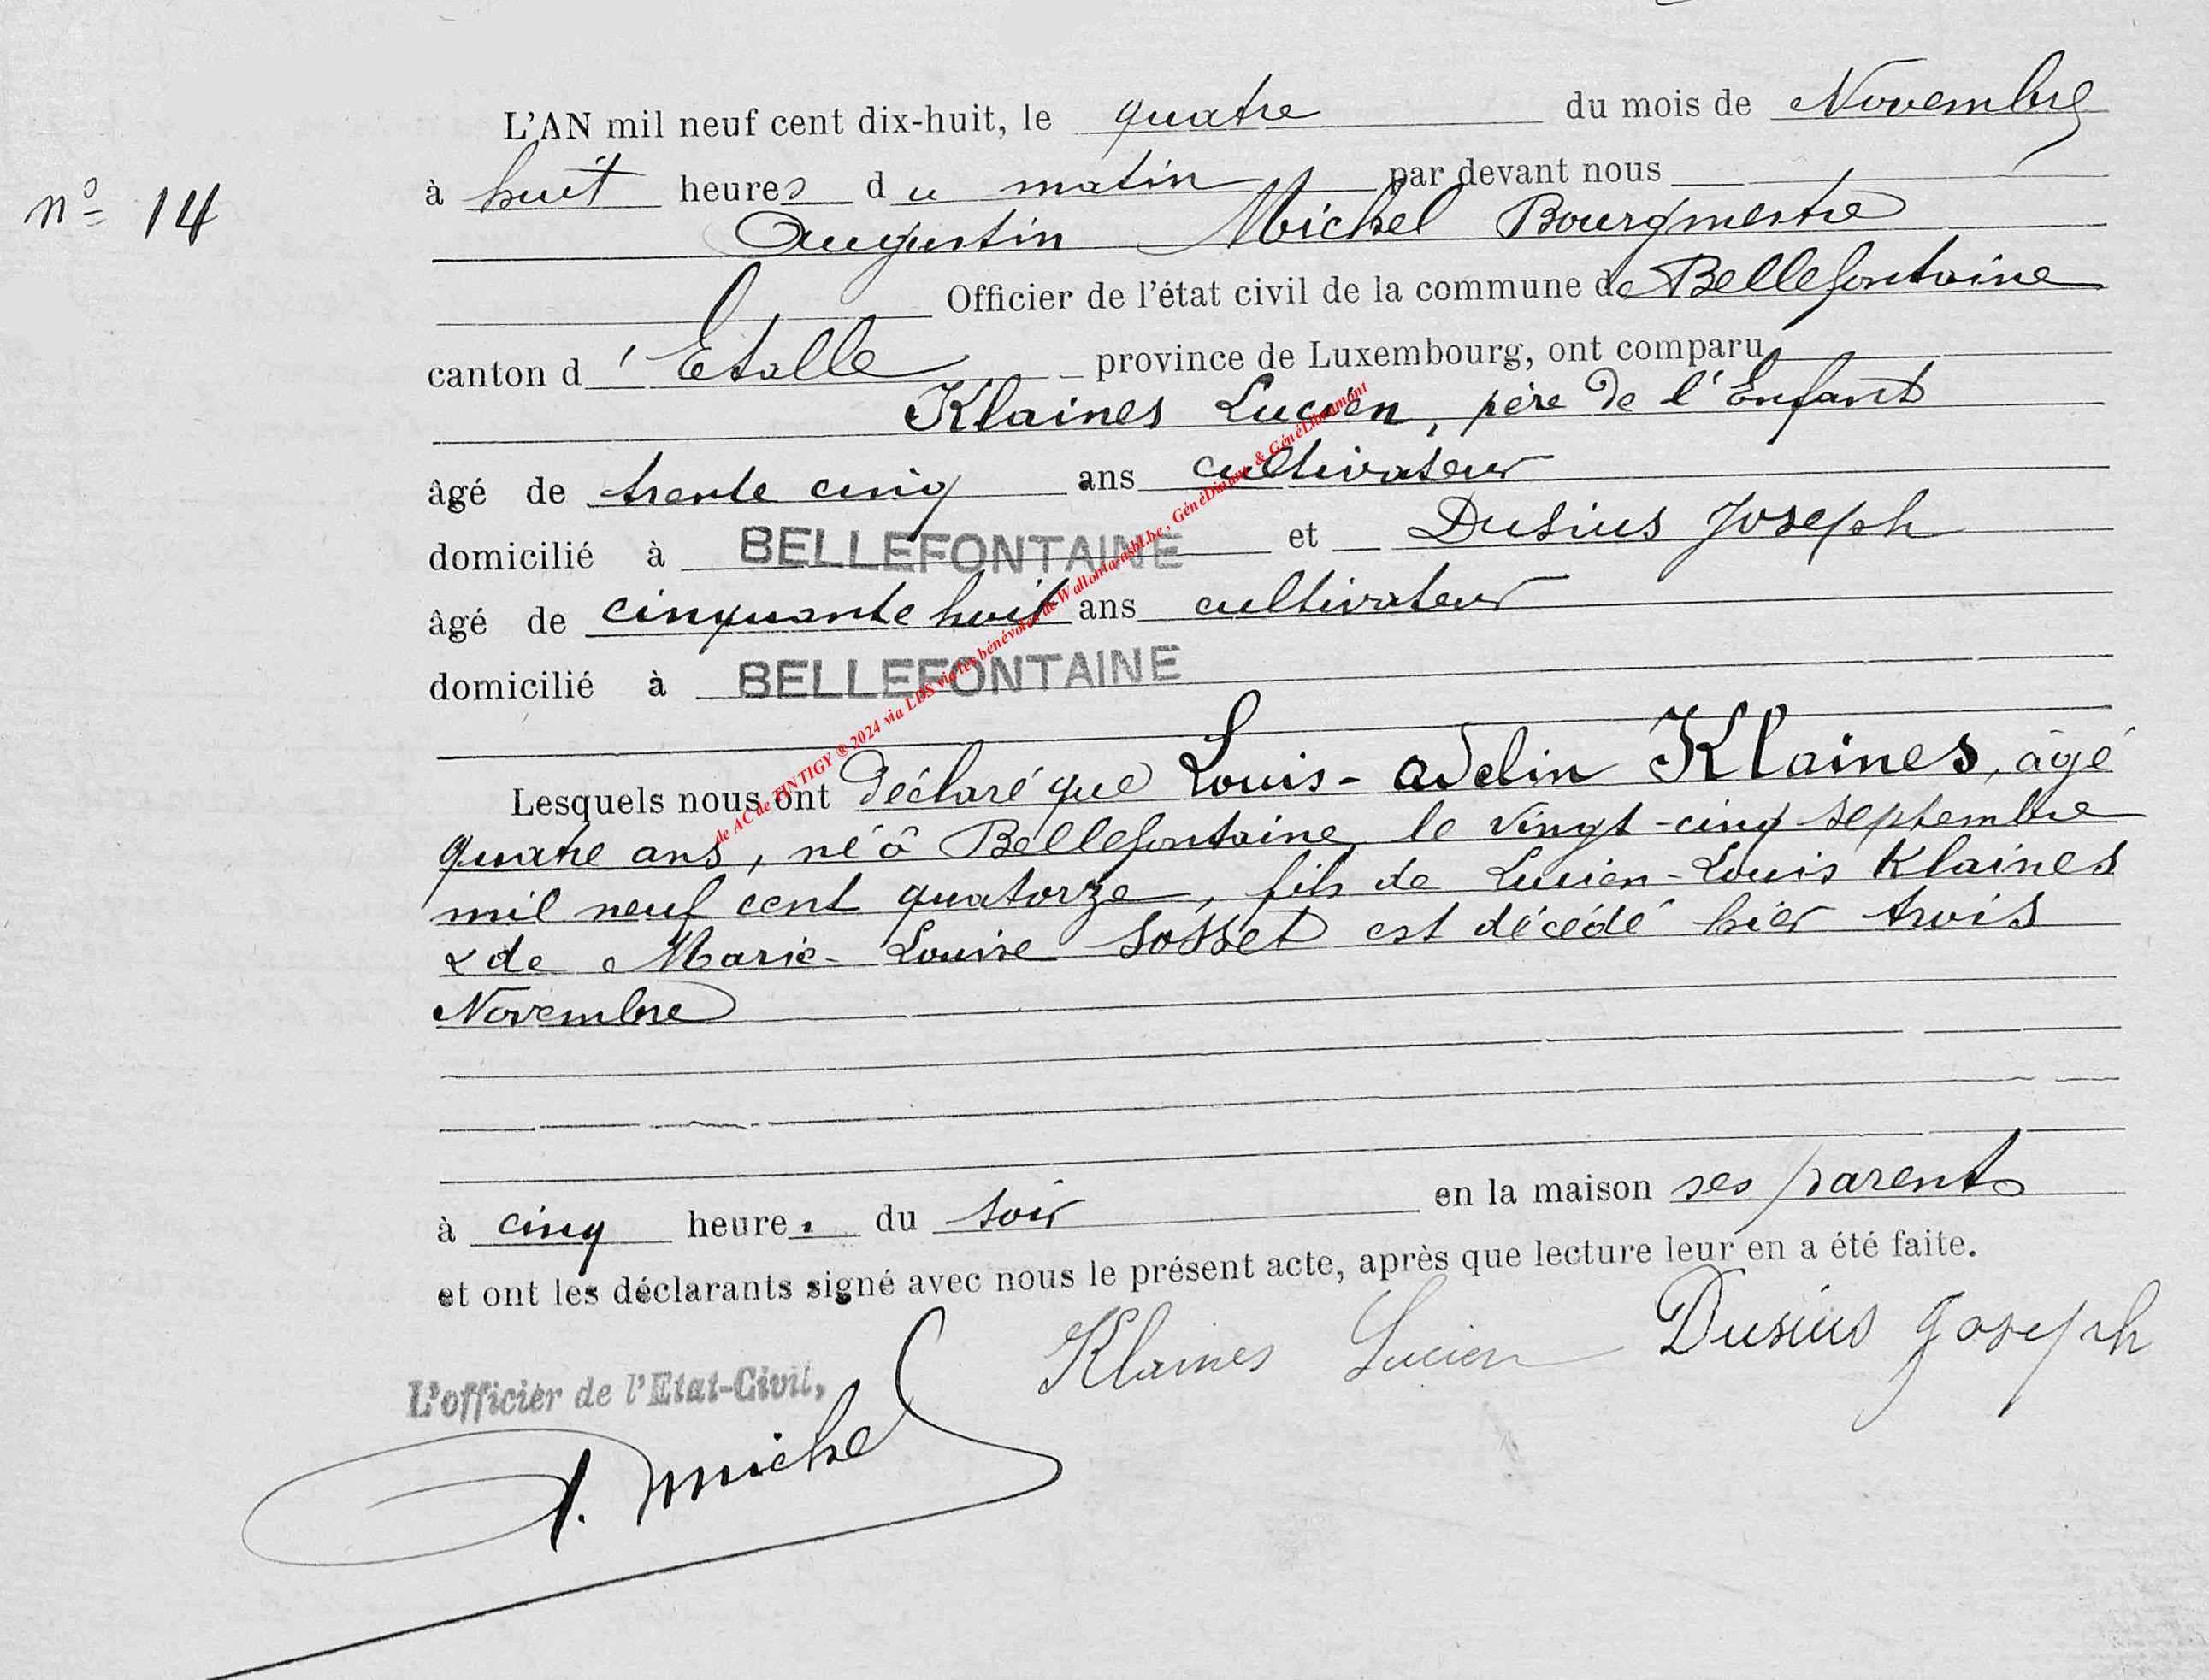 L'AN mil neuf cent dix-huit, le quatre du mois de Novembre
à huit heures du matin par devant nous
nº 14
Augustin Michel Bourgmestre
Officier de l'état civil de la commune de Bellefontaine
canton d'Etalle province de Luxembourg, ont comparu
Klaines Lucien, père de l'Enfant
âgé de trente cinq ans cultivateur
domicilié à BELLEFONTAINE et Dusius Joseph
âgé de cinquante huit ans cultivateur
domicilié à BELLEFONTAINE
de AC de TINTIGY ® 2024 via LDS via les bénévoles de Wallonia-asbl.be, GénéDinant & GénéLibramont
Lesquels nous ont déclaré que Louis-Adelin Klaines, âgé
quatre ans, né à Bellefontaine le vingt-cinq septembre
mil neuf cent quatorze, fils de Lucien-Louis Klaines
& de Marie-Louise Sosset est décédé hier trois
Novembre
à cinq heure. du soir en la maison ses parents
et ont les déclarants signé avec nous le présent acte, après que lecture leur en a été faite.
Klaines Lucien Dusius Joseph
L'officier de l'Etat-Civil,
A. Michel